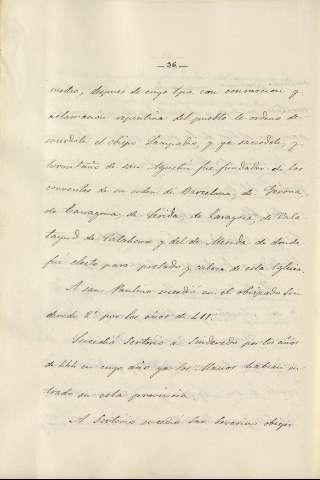 — 36. —
medio, despues de cuyo tpo. con conmocion y
aclamacion repentina del pueblo le ordenó de
sacerdote el obispo Lampadio, y ya sacerdote, y
hermitaño de san Agustin fué fundador de los
conventos de su orden de Barcelona, de Gerona,
de Tarragona, de Lérida, de Zaragoza, de Cala
tayud de Calahorra y del de Merida de donde
fué electo para prelado y cabeza de esta Iglesia.
A san Paulino sucedió en el obispado Sen
deredo 2º por los años de 411.
Sucedió Sertorio á Sinderedo por los años
de 444 en cuyo año ya los Moros habian en
trado en esta provincia.
A Sertorio sucedió San Severino obispo